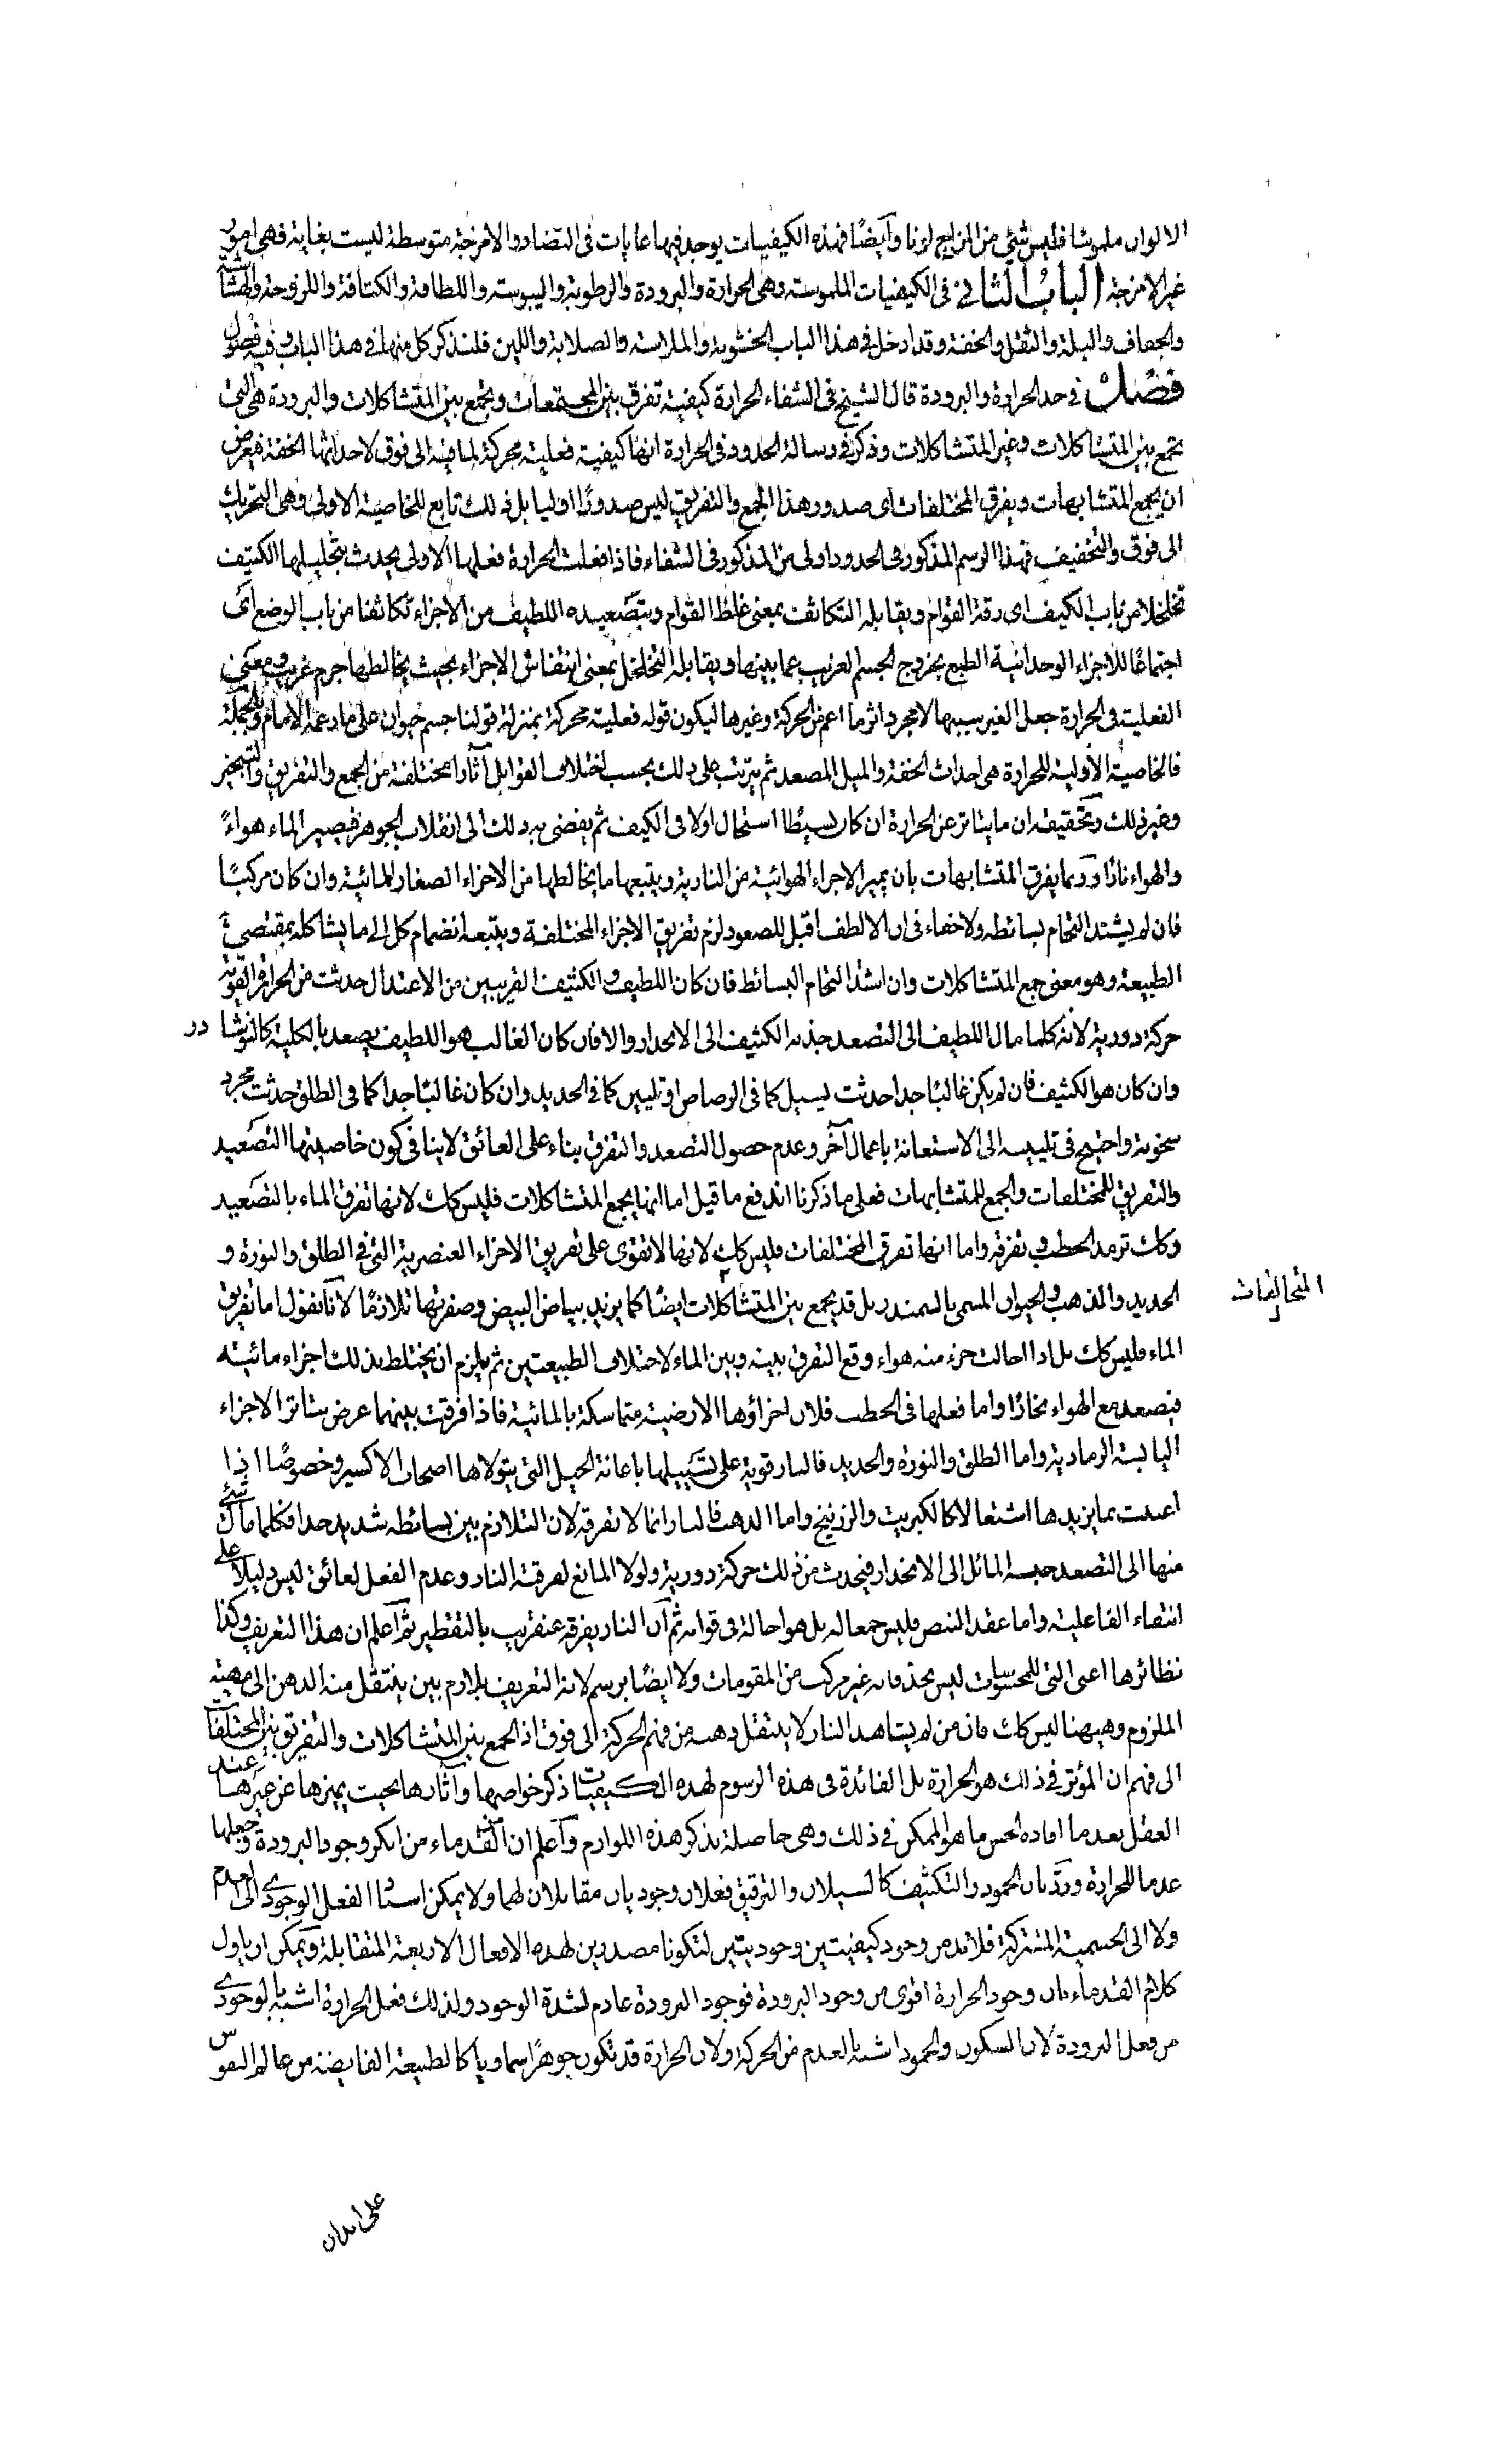 الالوان ملموسا فليس شئ من المزاج لونا وأيضًا فهذه الكيفيات يوجد فيها غايات فى التضاد والامزجة متوسطة ليست بغاية فهى امور
غير الامزجة الباب الثانى فى الكيفيات الملموسة وهى الحرارة والبرودة والرطوبة واليبوسة واللطافة والكثافة واللزوجة والهشاشة
والجفاف والبلة والثقل والخفة وقد ادخل فى هذا الباب الخشونة والملاسة والصلابة واللين فلنذكر كل منها فى هذا الباب وفيه فصول
فصل فى حد الحرارة والبرودة قال الشيخ فى الشفاء الحرارة كيفية تفرق بين المجتمعات وتجمع بين المتشاكلات والبرودة هى التى
تجمع بين المتشاكلات وغير المتشاكلات وذكر فى رسالة الحدود فى الحرارة انها كيفية فعلية محركة لما فيه الى فوق لاحداثها الخفة فيعرض
ان يجمع المتشابهات ويفرق المختلفات اى صدور هذا الجمع والتفريق ليس صدورًا اوليا بل ذلك تابع للخاصية الاولى وهى التحريك
الى فوق والتخفيف فهذا الرسم المذكور فى الحدود اولى من المذكور فى الشفاء فاذا فعلت الحرارة فعلها الاولى يحدث بتحليلها الكثيف
تخلخلا من باب الكيف اى رقة القوام ويقابله التكاثف بمعنى غلظ القوام وبتصعيده اللطيف من الاجزاء تكاثفا من باب الوضع اى
اجتماعًا للاجزاء الوحدانية الطبع بخروج الجسم الغريب عما بينها ويقابله التخلخل بمعنى انتفاش الاجزاء بحيث يخالطها جرم غريب ومعنى
الفعلية فى الحرارة جعل الغير سببها لا مجرد اثر ما اعم من الحركة وغيرها ليكون قوله فعلية محركة بمنزلة قولنا جسم حيوان على ما زعمه الامام وبالجملة
فالخاصية الاولية للحرارة هى احداث الخفة والميل المصعد ثم يترتب على ذلك بحسب اختلاف القوابل آثار مختلفة من الجمع والتفريق والتبخير
وغير ذلك وتحقيقه ان ما يتاثر عن الحرارة ان كان بسيطًا استحال اولا فى الكيف ثم يفضى به ذلك الى انقلاب الجوهر فيصير الماء هواءً
والهواء نارًا وربما يفرق المتشابهات بان يميز الاجزاء الهوائية من النارية ويتبعها ما يخالطها من الاجزاء الصغار المائية وان كان مركبًا
فان لم يشتد التحام بسائطه ولا خفاء فى ان الالطف اقبل للصعود لزم تفريق الاجزاء المختلفة ويتبعه انضمام كل الى ما يشاكله بمقتضى
الطبيعة وهو معنى جمع المتشاكلات وان اشتد التحام البسائط فان كان اللطيف والكثيف القريبين من الاعتدال حدثت من الحرارة القوية
حركة دورية لانه كلما مال اللطيف الى التصعد جذبه الكثيف الى الانحدار والا فان كان الغالب هو اللطيف يصعد بالكلية كالنوشا در
وان كان هو الكثيف فان لم يكن غالبًا جدا حدثت تسييل كما فى الرصاص او تليين كما فى الحديد وان كان غالبًا جدا كما فى الطلق حدثت مجرد
سخونة واحتيج فى تليينه الى الاستعانة باعمال آخر وعدم حصول التصعد والتفرق بناء على العائق لا ينافى كون خاصيتها التصعيد
والتفريق للمختلفات والجمع للمتشابهات فعلى ما ذكرنا اندفع ما قيل اما انها يجمع المتشاكلات فليس كك لانها تفرق الماء بالتصعيد
وكك ترمد الحطب وتفرقه واما انها تفرق المختلفات فليس كك لانها لا تقوى على تفريق الاجزاء العنصرية التى فى الطلق والنورة و
الحديد والذهب والحيوان المسمى بالسمندر بل قد يجمع بين المتشاكلات ايضًا كما يزيد بياض البيض وصفرتها تلازمًا لانا نقول اما تفريق
المتخالفات
الماء فليس كك بل اذا احالت جزء منه هواء وقع التفرق بينه وبين الماء لاختلاف الطبيعتين ثم يلزم ان يختلط بذلك اجزاء مائية
فيصعد مع الهواء بخارًا واما فعلها فى الحطب فلان اجزاؤها الارضية متماسكة بالمائية فاذا فرقت بينهما عرض تناثر الاجزاء
اليابسة الرمادية واما الطلق والنورة والحديد فالنار قوية على تسييلها باعانة الحيل التى يتولاها اصحاب الاكسير وخصوصًا اذا
اعينت بما يزيدها اشتعالا كالكبريت والزرنيخ واما الذهب فالنار انما لا تفرقه لان التلازم بين بسائطه شديد جدا فكلما مال شئ
منها الى التصعد حبسه المائل الى الانحدار فيحدث من ذلك حركة دورية ولولا المانع لفرقته النار وعدم الفعل لعائق ليس دليلا على
انتفاء الفاعلية واما عقد البيض فليس جمعا له بل هو احالة فى قوامه ثم ان النار يفرقه عنقريب بالتقطير ثم اعلم ان هذا التعريف وكذا
نظائرها اعنى التى للمحسوسات ليس بحد فانه غير مركب من المقومات ولا ايضًا برسم لانه التعريف بلازم بين ينتقل منه الذهن الى مهية
الملزوم وهيهنا ليس كك فان من لم يشاهد النار لا ينتقل ذهنه من فهم الحركة الى فوق اذ الجمع بين المتشاكلات والتفريق بين المختلفات
الى فهم ان المؤثر فى ذلك هو الحرارة بل الفائدة فى هذه الرسوم لهذه الكيفيات ذكر خواصها وآثارها بحيث يميزها عن غيرها عند
العقل بعد ما افاده الحس ما هو الممكن فى ذلك وهى حاصلة بذكر هذه اللوازم واعلم ان من القدماء من انكر وجود البرودة وجعلها
عدما للحرارة وردّ بان الجمود والتكثيف كالسيلان والترقيق فعلان وجوديان مقابلان لهما ولا يمكن اسناد الفعل الوجودى الى العدم
ولا الى الجسمية المشتركة فلابد من وجود كيفيتين وجوديتين لتكونا مصدرين لهذه الافعال الاربعة المتقابلة ويمكن ان ياول
كلام القدماء بان وجود الحرارة اقوى من وجود البرودة فوجود البرودة عادم لشدة الوجود ولذلك فعل الحرارة اشبه بالوجودى
من فعل البرودة لان السكون والجمود اشبه بالعدم من الحركة ولان الحرارة قد تكون جوهرًا سماويا كالطبيعة الفايضة من عالم النفوس
على ابدان